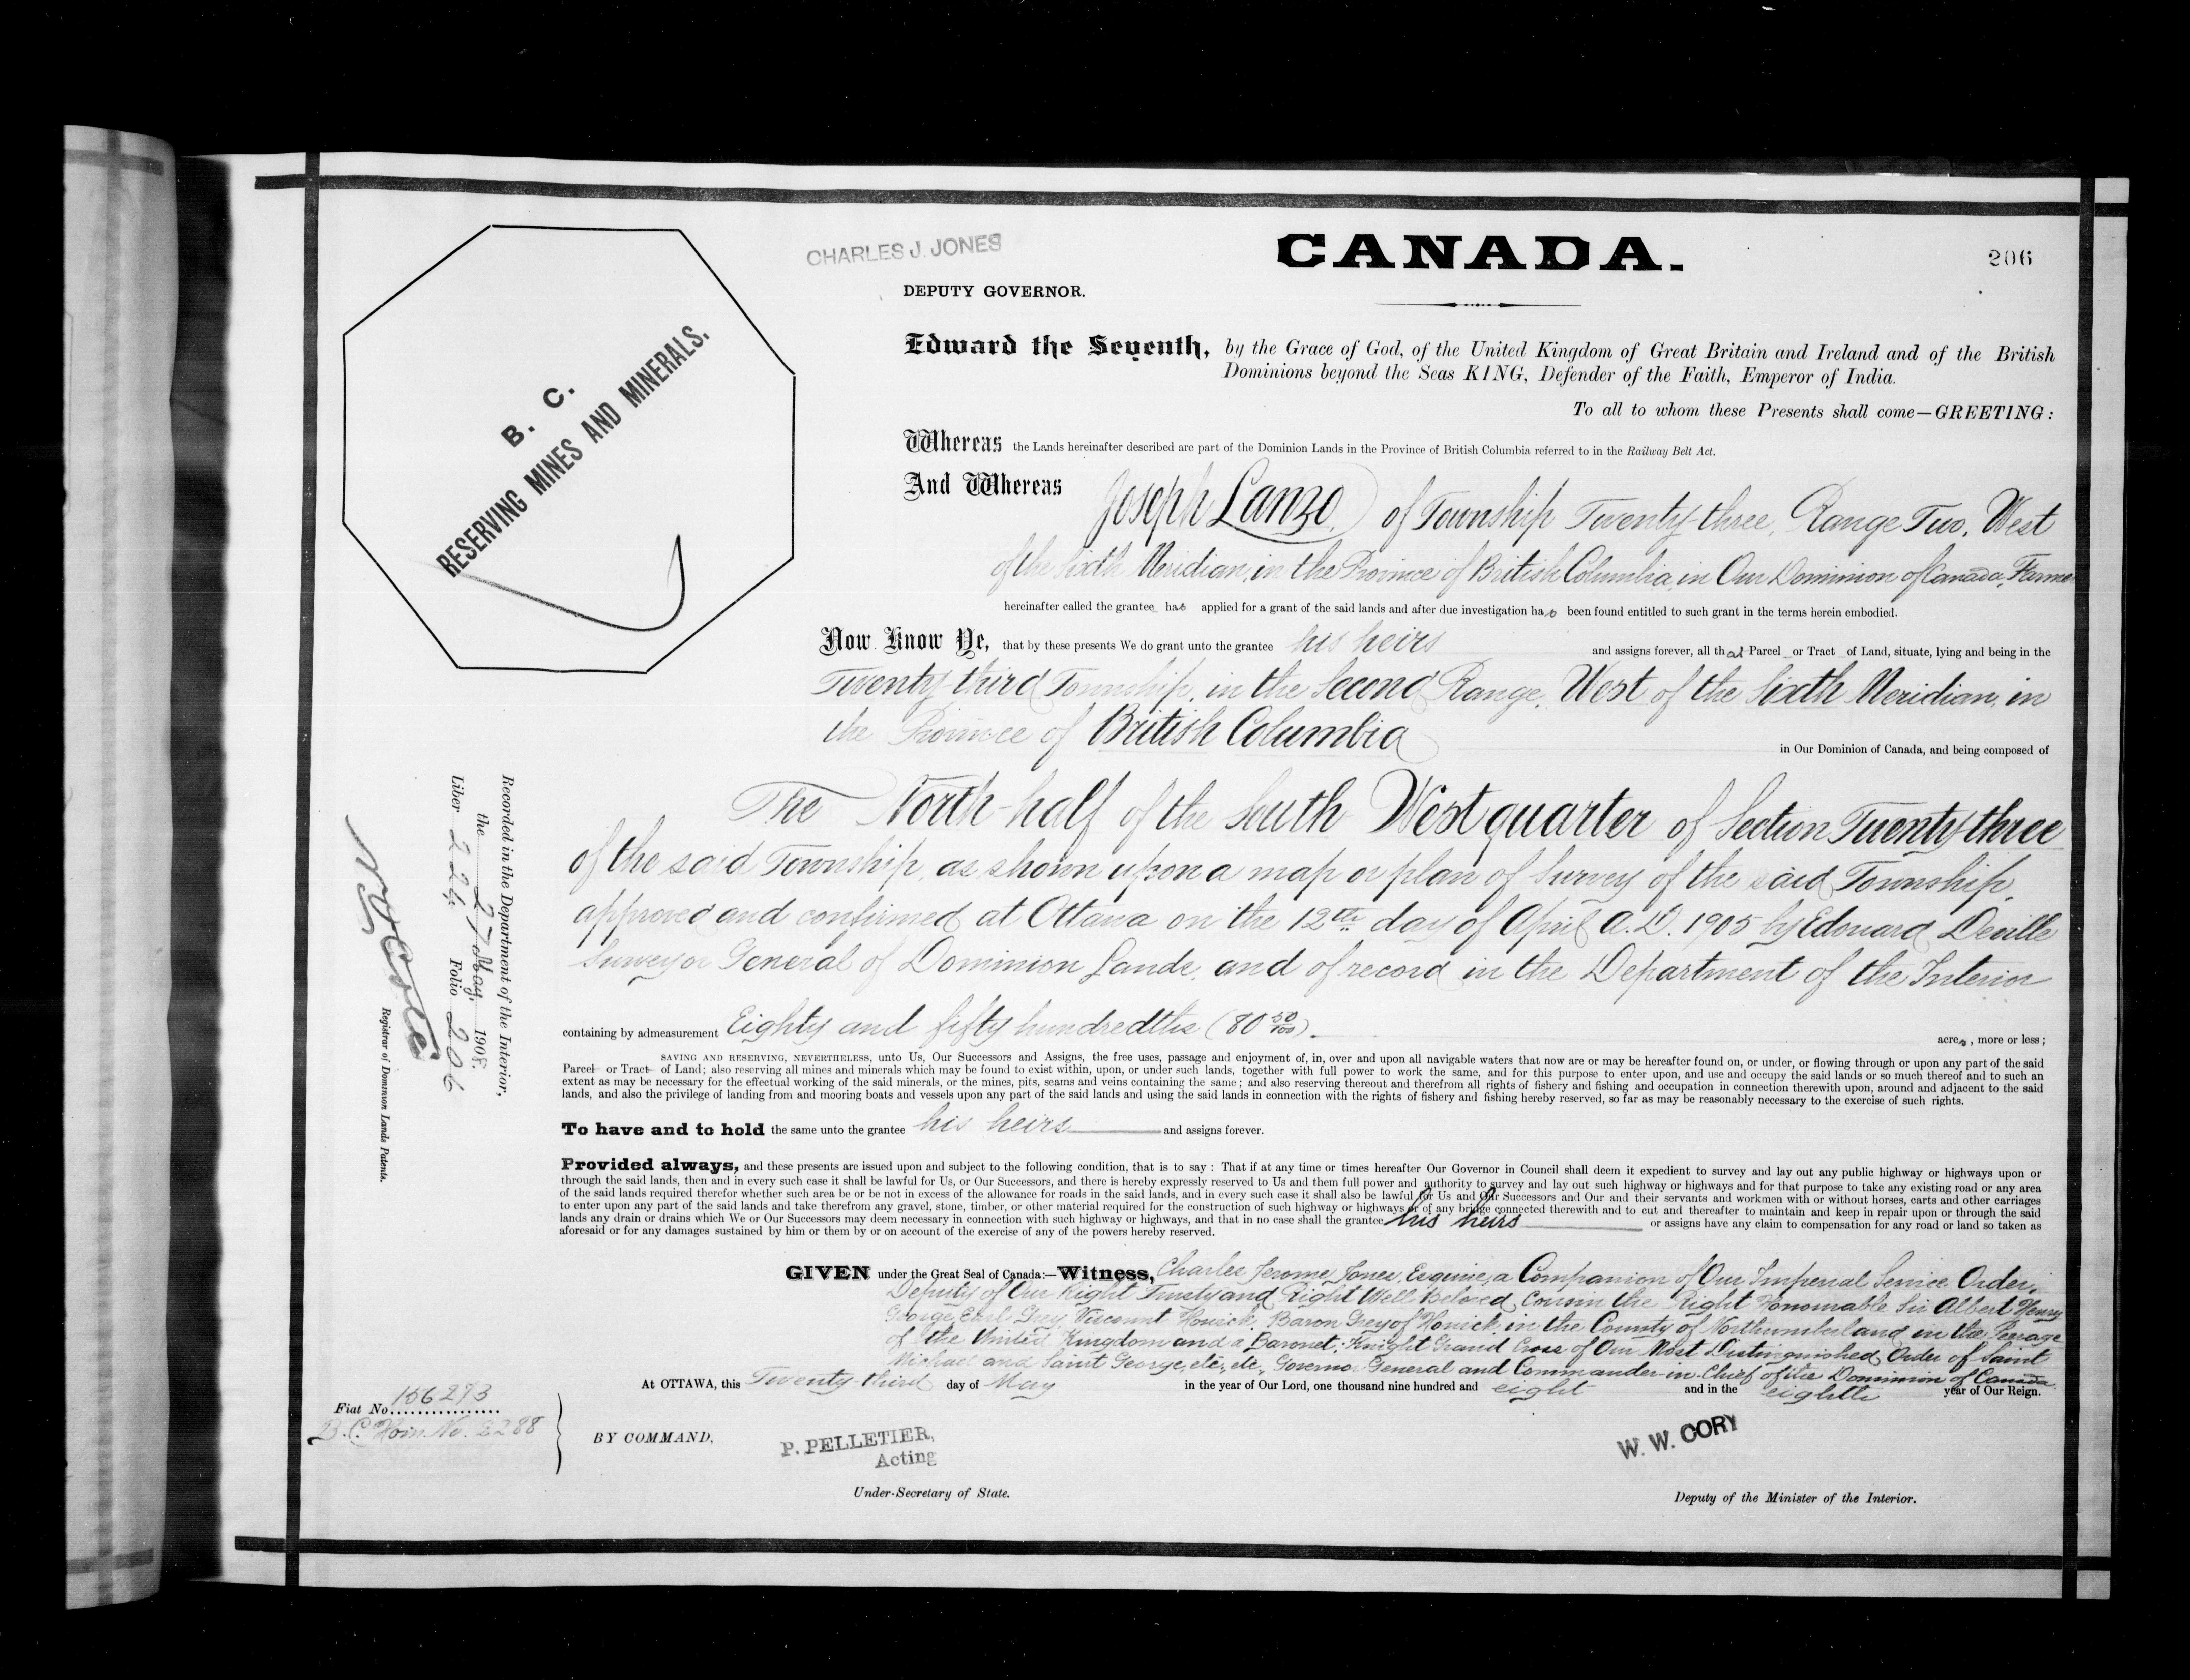 CHARLES J. JONES
CANADA.
206
DEPUTY GOVERNOR.
B. C.
RESERVING MINES AND MINERALS.
Edward the Seventh, by the Grace of God, of the United Kingdom of Great Britain and Ireland and of the British
Dominions beyond the Seas KING, Defender of the Faith, Emperor of India.
To all to whom these Presents shall come—GREETING:
Whereas the Lands hereinafter described are part of the Dominion Lands in the Province of British Columbia referred to in the Railway Belt Act.
And Whereas Joseph Lanzo of Township Twenty-three, Range Two, West
of the Sixth Meridian, in the Province of British Columbia, in Our Dominion of Canada, Farmer
hereinafter called the grantee has applied for a grant of the said lands and after due investigation has been found entitled to such grant in the terms herein embodied.
Now Know Ye, that by these presents We do grant unto the grantee his heirs and assigns forever, all that Parcel or Tract of Land, situate, lying and being in the
Twenty-third Township, in the Second Range, West of the Sixth Meridian, in
the Province of British Columbia in Our Dominion of Canada, and being composed of
The North-half of the South West quarter of Section Twenty-three
of the said Township, as shown upon a map or plan of Survey of the said Township,
approved and confirmed at Ottawa on the 12th day of April A.D. 1905 by Edouard Deville
Surveyor General of Dominion Lands, and of record in the Department of the Interior
containing by admeasurement Eighty and fifty hundredths (80 50/100) acres, more or less;
SAVING AND RESERVING, NEVERTHELESS, unto Us, Our Successors and Assigns, the free uses, passage and enjoyment of, in, over and upon all navigable waters that now are or may be hereafter found on, or under, or flowing through or upon any part of the said
Parcel or Tract of Land; also reserving all mines and minerals which may be found to exist within, upon, or under such lands, together with full power to work the same, and for this purpose to enter upon, and use and occupy the said lands or so much thereof and to such an
extent as may be necessary for the effectual working of the said minerals, or the mines, pits, seams and veins containing the same; and also reserving thereout and therefrom all rights of fishery and fishing and occupation in connection therewith upon, around and adjacent to the said
lands, and also the privilege of landing from and mooring boats and vessels upon any part of the said lands and using the said lands in connection with the rights of fishery and fishing hereby reserved, so far as may be reasonably necessary to the exercise of such rights.
To have and to hold the same unto the grantee his heirs and assigns forever.
Provided always, and these presents are issued upon and subject to the following condition, that is to say: That if at any time or times hereafter Our Governor in Council shall deem it expedient to survey and lay out any public highway or highways upon or
through the said lands, then and in every such case it shall be lawful for Us, or Our Successors, and there is hereby expressly reserved to Us and them full power and authority to survey and lay out such highway or highways and for that purpose to take any existing road or any area
of the said lands required therefor whether such area be or be not in excess of the allowance for roads in the said lands, and in every such case it shall also be lawful for Us and Our Successors and Our and their servants and workmen with or without horses, carts and other carriages
to enter upon any part of the said lands and take therefrom any gravel, stone, timber, or other material required for the construction of such highway or highways or of any bridge connected therewith and to cut and thereafter to maintain and keep in repair upon or through the said
lands any drain or drains which We or Our Successors may deem necessary in connection with such highway or highways, and that in no case shall the grantee his heirs or assigns have any claim to compensation for any road or land so taken as
aforesaid or for any damages sustained by him or them by or on account of the exercise of any of the powers hereby reserved.
GIVEN under the Great Seal of Canada:—Witness, Charles Jerome Jones, Esquire, a Companion of Our Imperial Service Order,
Deputy of Our Right Trusty and Right Well Beloved Cousin the Right Honourable Sir Albert Henry
George, Earl Grey, Viscount Howick, Baron Grey of Howick, in the County of Northumberland in the Peerage
of the United Kingdom and a Baronet; Knight Grand Cross of Our Most Distinguished Order of Saint
Michael and Saint George, etc., etc., Governor General and Commander-in-Chief of the Dominion of Canada
At OTTAWA, this Twenty-third day of May in the year of Our Lord, one thousand nine hundred and eight and in the eighth year of Our Reign.
Fiat No. 156293
B.C. Hom. No. 2288
BY COMMAND,
P. PELLETIER,
Acting
Under-Secretary of State.
W. W. CORY
Deputy of the Minister of the Interior.
Recorded in the Department of the Interior,
the 27 May, 1908.
Liber 224 Folio 206
Registrar of Dominion Lands Patents.